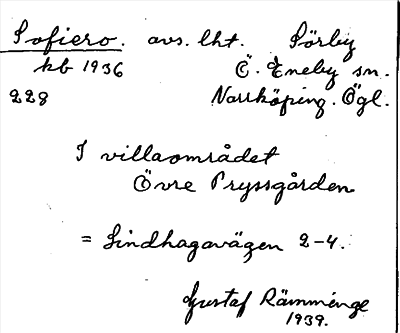 Sofiero. avs. lht. Sörby
kb 1936 Ö. Eneby sn.
228 Norrköping. Ögl.
I villaområdet
Övre Pryssgården
= Lindhagavägen 2-4.
Gustaf Rämminge
1939.